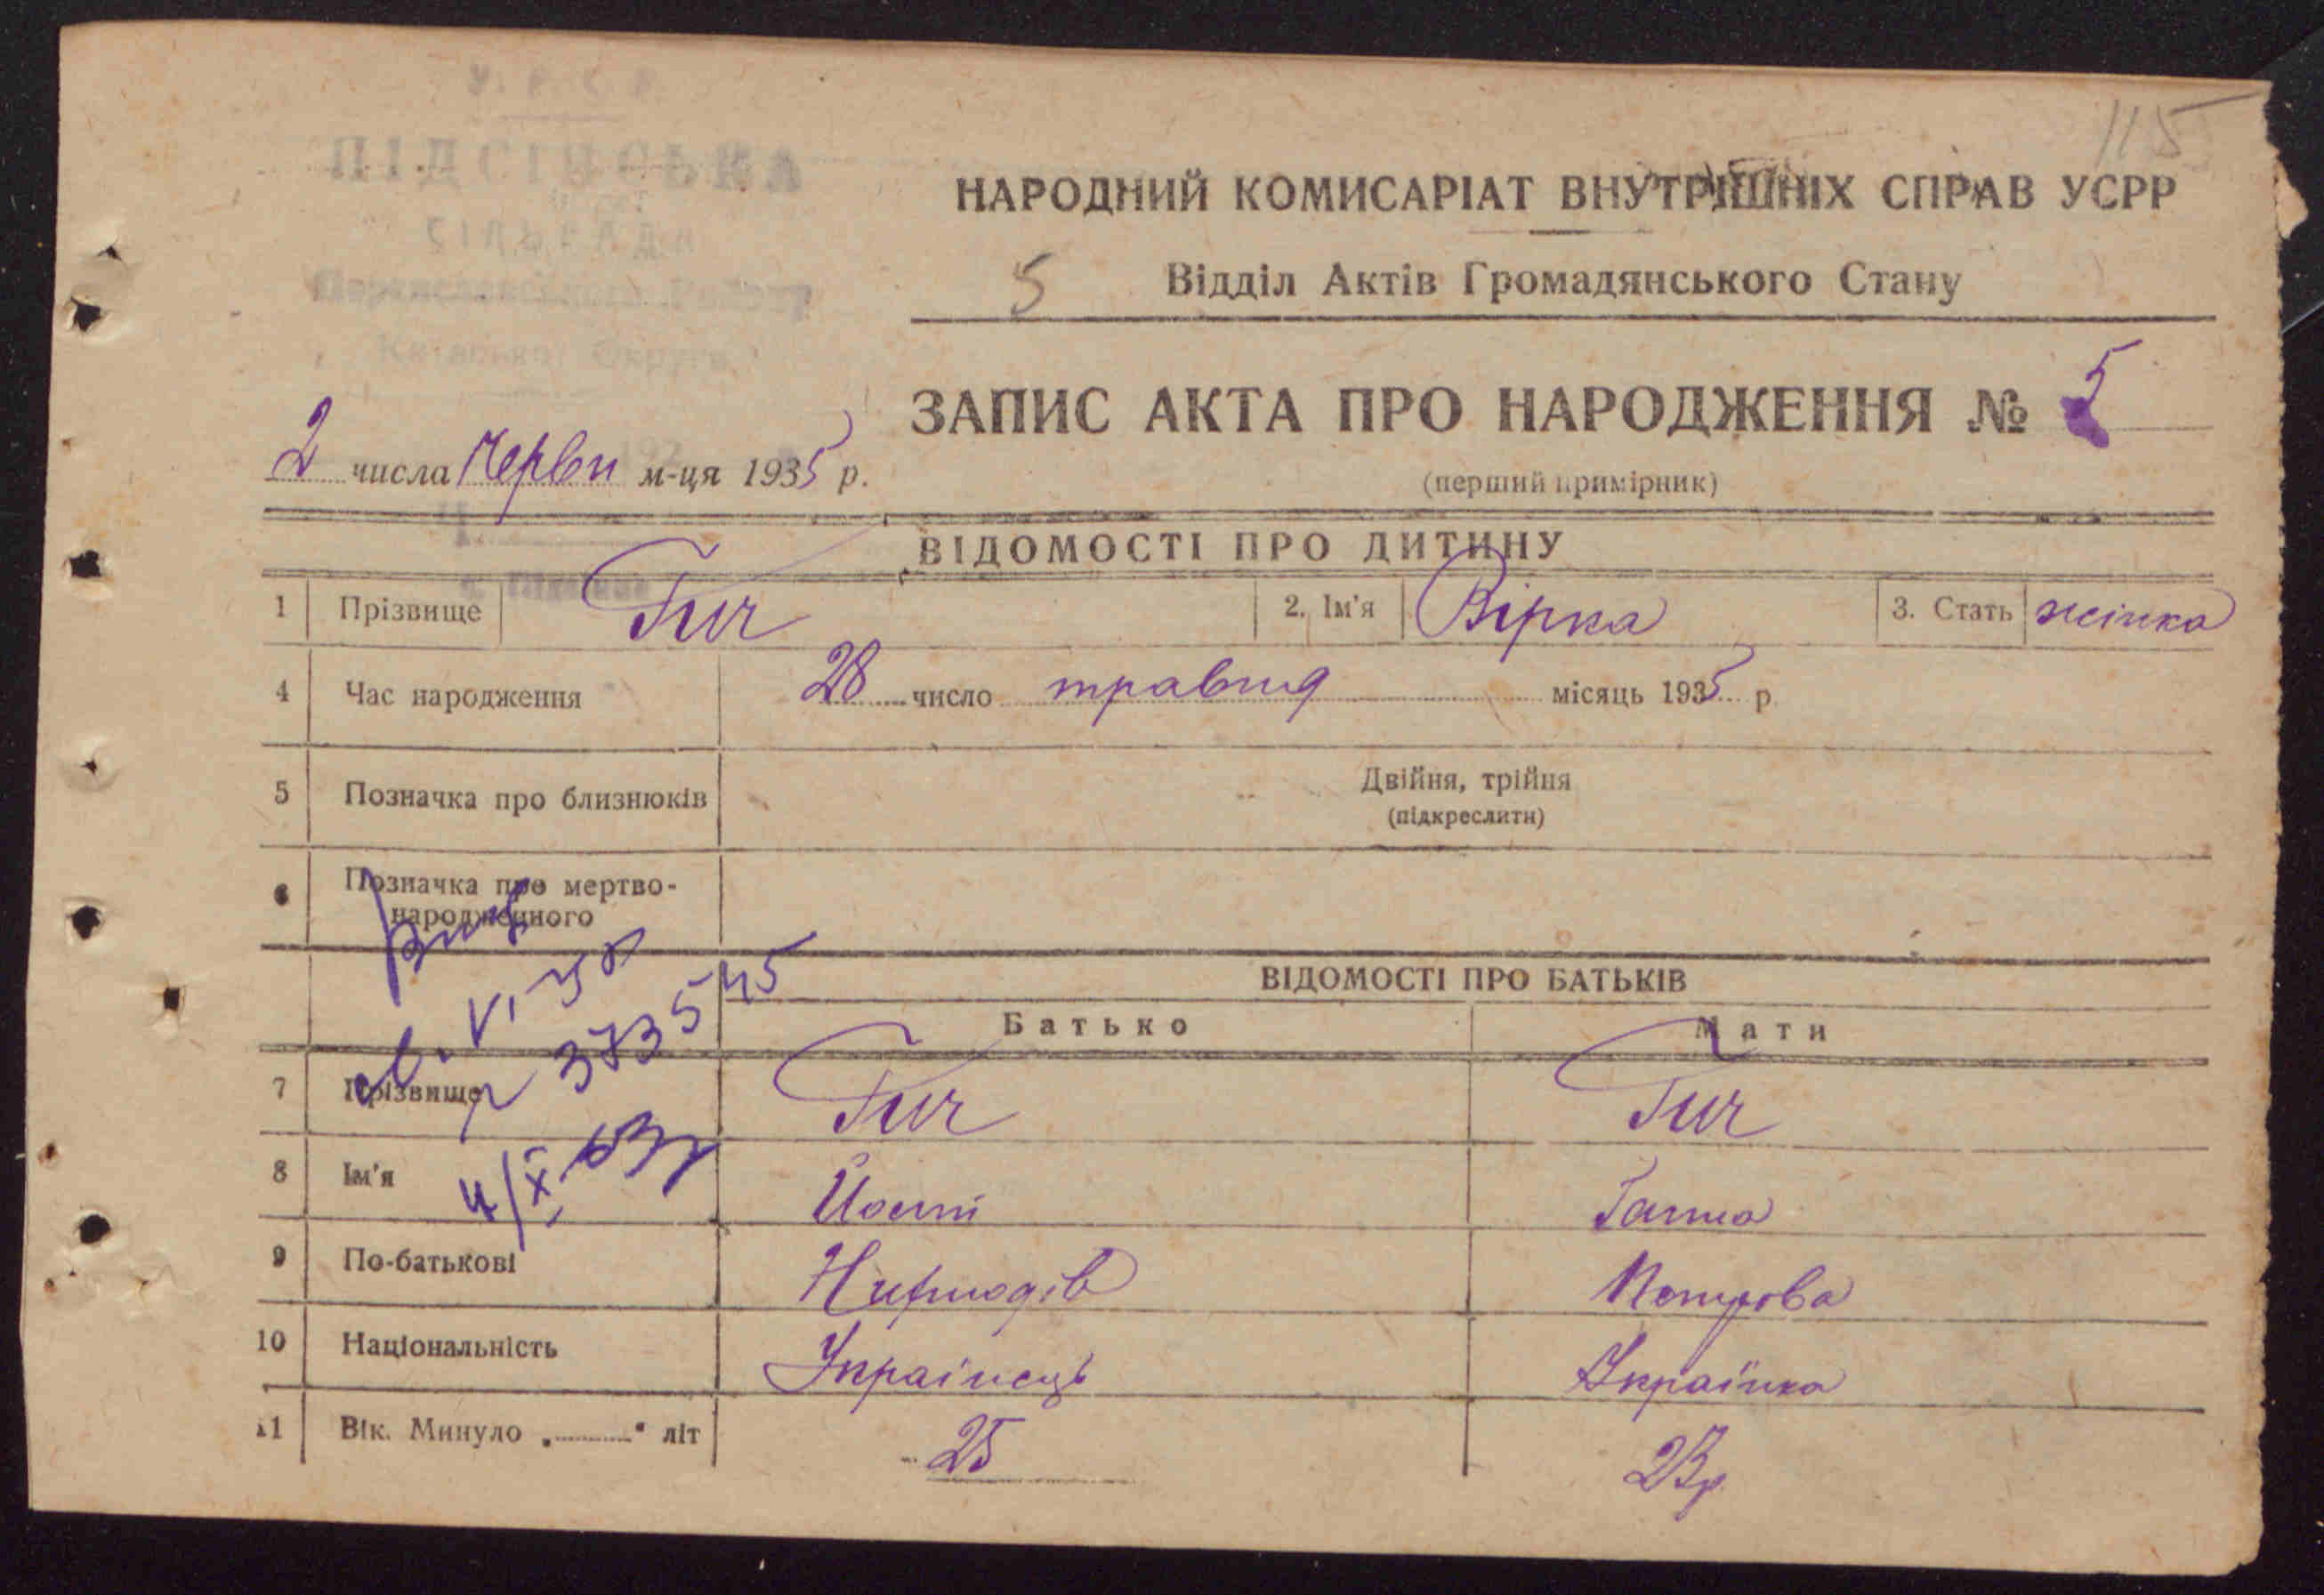 115
У.Р.С.Р.
ПІДСІНСЬКА
СІЛЬРАДА
Округи
НАРОДНИЙ КОМИСАРІАТ ВНУТРІШНІХ СПРАВ УСРР
5 Відділ Актів Громадянського Стану
ЗАПИС АКТА ПРО НАРОДЖЕННЯ № 5
2 числа Червн м-ця 1935 р.
(перший примірник)
ВІДОМОСТІ ПРО ДИТИНУ
1 Прізвище Гич 2. Ім'я Вірка 3. Стать жінка
4 Час народження 28 число травня місяць 1935 р
5 Позначка про близнюків Двійня, трійня
(підкреслити)
6 Позначка про мертво-
народженного
ВІДОМОСТІ ПРО БАТЬКІВ
Батько Мати
7 Прізвище Гич Гич
8 Ім'я Йосип Ганна
9 По-батькові Петрова
10 Національність Українець Українка
11 Вік. Минуло „ “ літ 25 23р
VI
373545
4/XI-63р